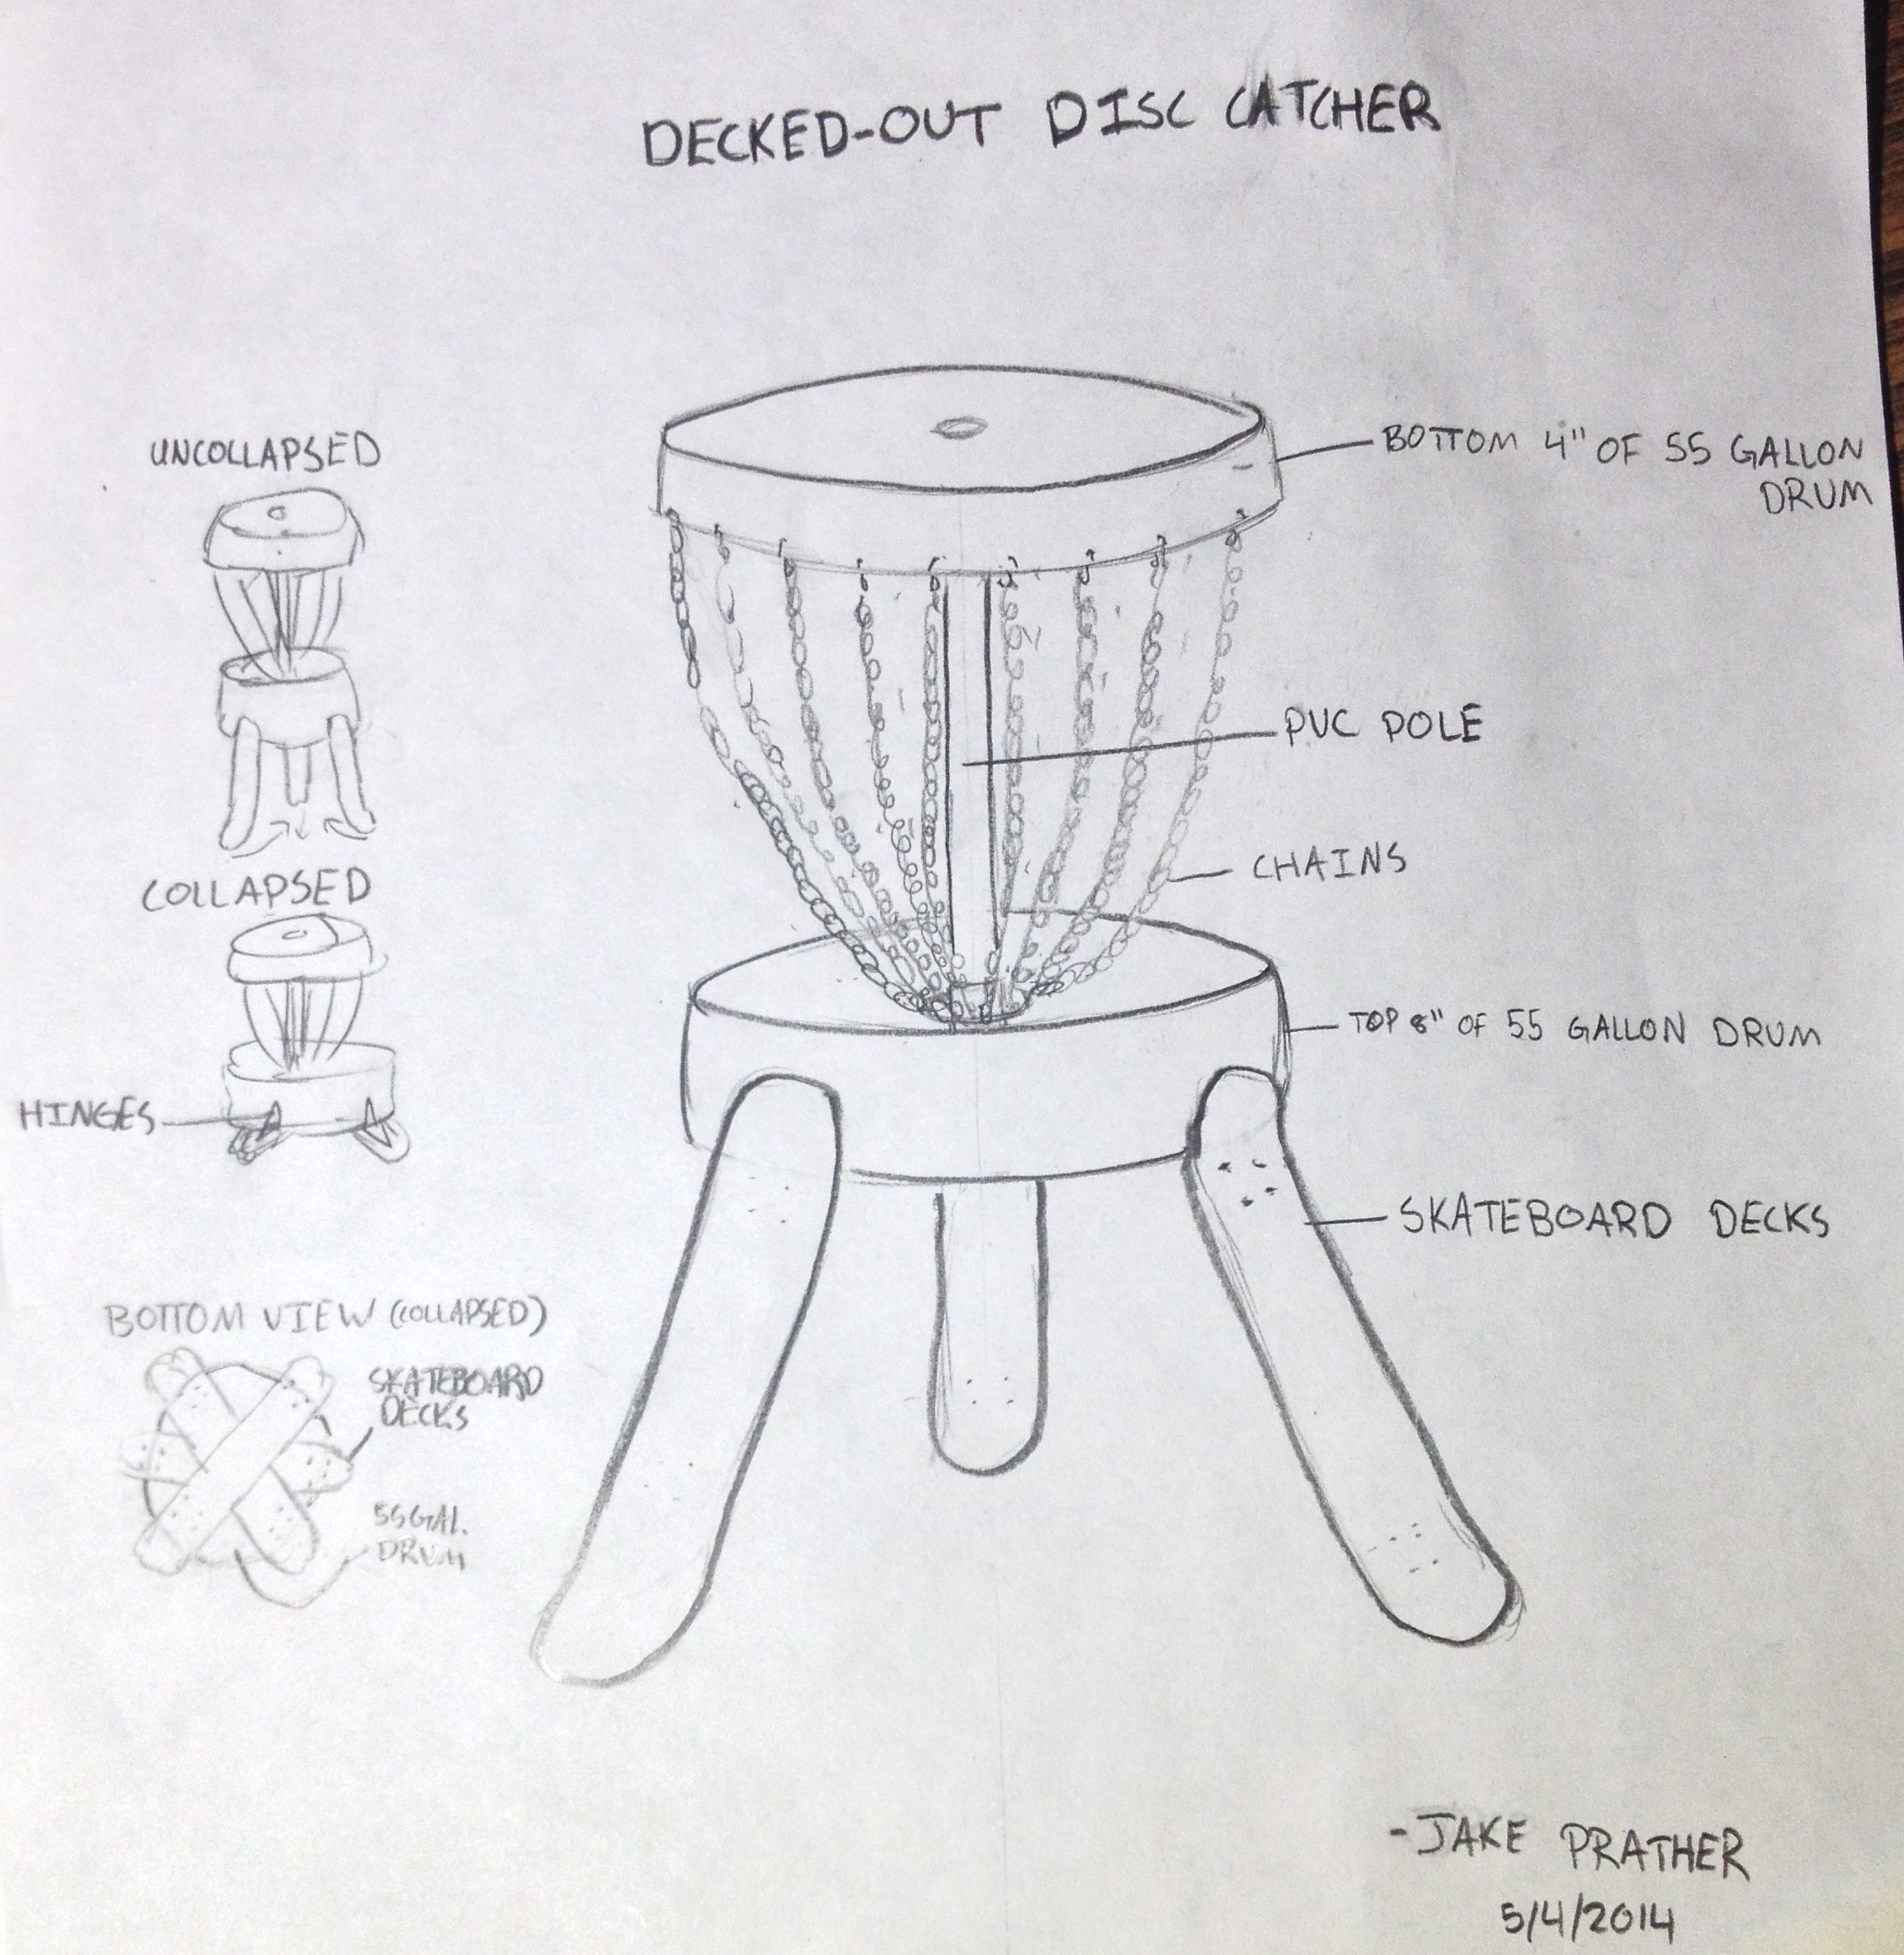 DECKED-OUT DISC CATCHER
UNCOLLAPSED
BOTTOM 4" OF 55 GALLON
DRUM
PVC POLE
CHAINS
COLLAPSED
HINGES
TOP 8" OF 55 GALLON DRUM
SKATEBOARD DECKS
BOTTOM VIEW (COLLAPSED)
SKATEBOARD
DECKS
55 GAL.
DRUM
-JAKE PRATHER
5/4/2014